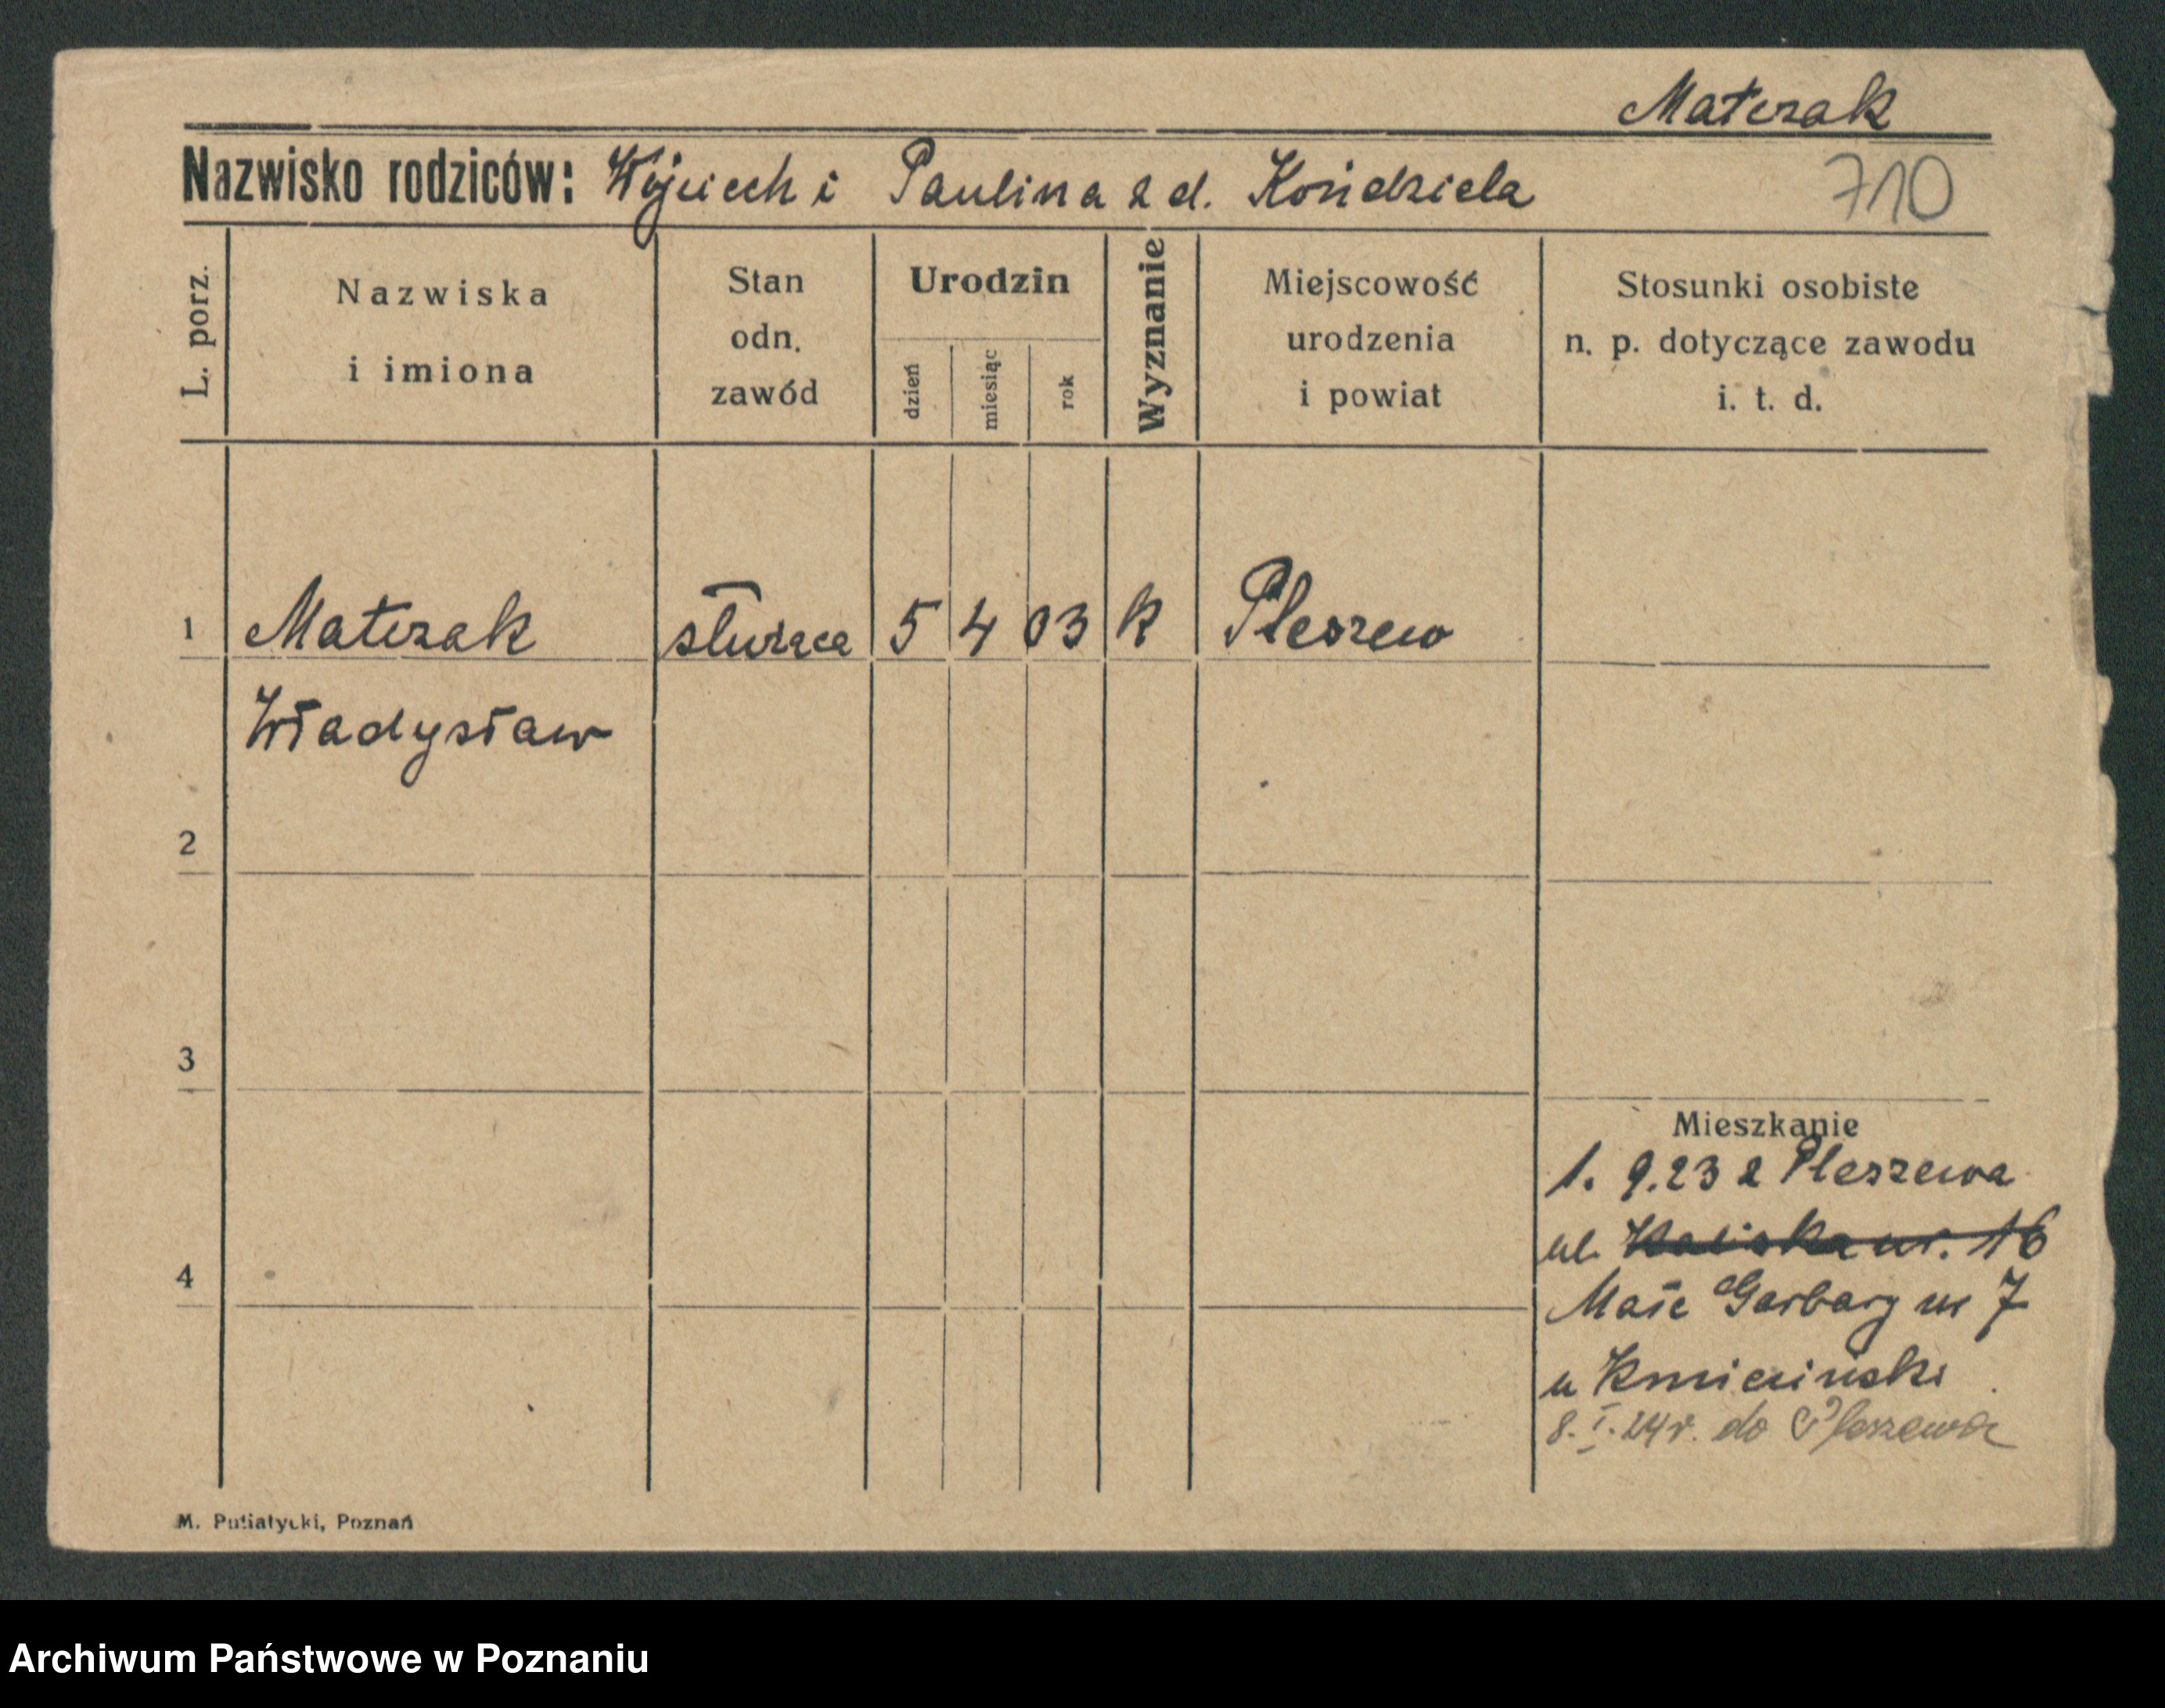 Matczak
Nazwisko rodziców: Wojciech i Paulina z d. Kończiela
710
L. porz.
Nazwiska
i imiona
Stan
odn.
zawód
Urodzin
dzień
miesiąc
rok
Wyznanie
Miejscowość
urodzenia
i powiat
Stosunki osobiste
n. p. dotyczące zawodu
i. t. d.
1 Matczak służąca 5 4 03 k Pleszew
Władysław
2
3
4
Mieszkanie
1. 9.23 z Pleszewa
ul. Kaliska nr. 16
Małe Garbary nr 7
u Kmieciński
8. I. 24 r. do Pleszewa
M. Putiatycki, Poznań
Archiwum Państwowe w Poznaniu